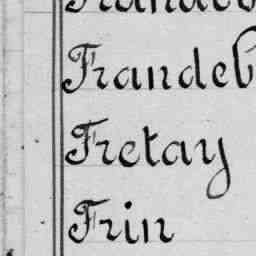 Frandeb
Fretay
Frin